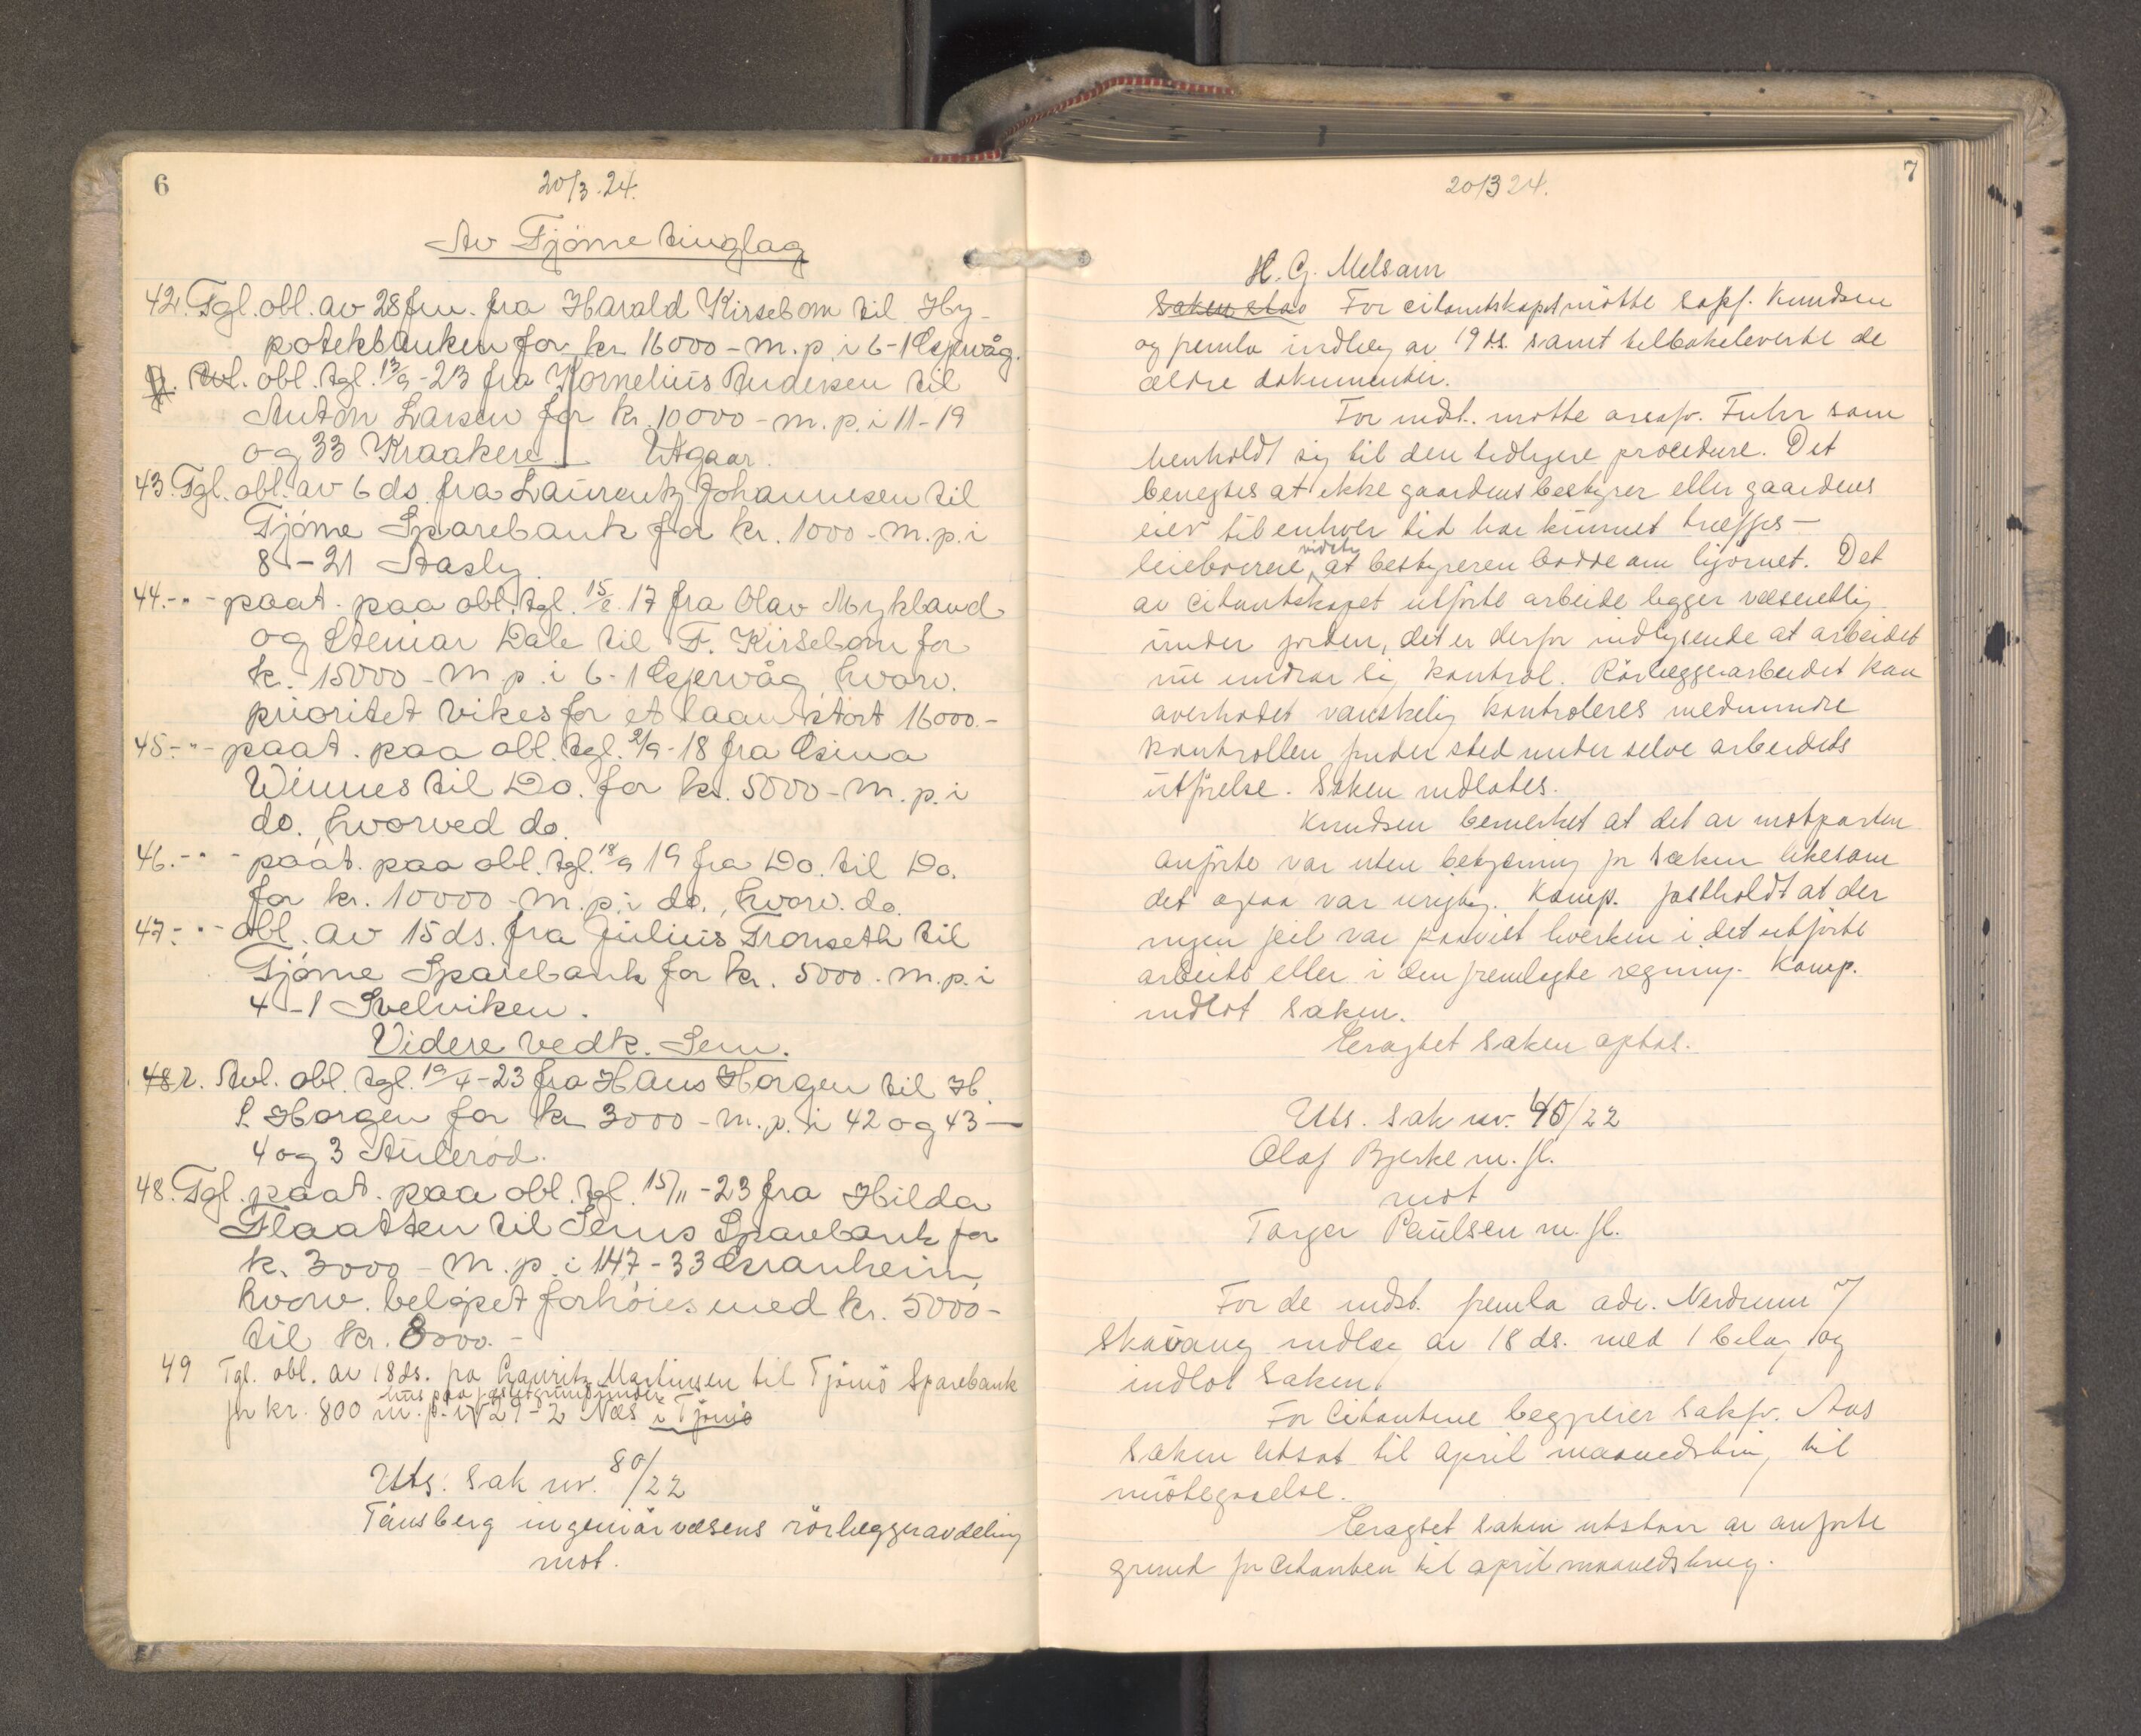 6
20/3.24.
Av Tjöme tinglag
42. Tgl. obl. av 28 fm. fra Harald Kirsebom til Hy-
potekbanken for kr 16000 - m. p. i 6-1
obl. tgl. 13/9-23 fra Kornelius Andersen til
Anton Larsen for kr. 10000 - m. p. i 11-19
og 33 Kraakere. Utgaar.
43. Tgl. obl. av 6 ds. fra Laurentz Johannesen til
Tjöme Sparebank for kr. 1000 - m. p. i
8-21 Aasly.
44.-"- paat. paa obl. tgl. 17 fra Olav Mykland
og Steinar Dale til F. Kirsebom for
k. 15000 - m. p. i 6-1 hvorv.
prioritet vikes for et laan stort 16000.-
45.-"- paat. paa obl. tgl. 2/9-18 fra
Winnes til Do. for kr. 5000 - m. p. i
do., hvorved do.
46.-"- paat. paa obl. tgl. 18/9 19 fra Do. til Do.
for kr. 10000 - m. p. i do., hvorv. do.
47.-"- obl. av 15 ds. fra Julius Tronseth til
Tjöme Sparebank for kr. 5000. m. p. i
4-1 Svelviken.
Videre vedk. Sem.
48 r. Avl. obl. tgl. 19/4-23 fra Hans Horgen til H.
Horgen for kr 3000 - m. p. i 42 og 43 —
4 og 3 Auleröd.
48. Tgl. paat. paa obl. tgl. 15/11-23 fra Hilda
Flaatten til Sems Sparebank for
k. 3000 - m. p. i 147-33 Granheim,
hvorv. belöpet forhöies med kr. 5000-
til kr. 8000.-
49 Tgl. obl. av 18 ds. fra Lauritz Martinsen til Tjömö Sparebank
hus paa fæstet grund under
for kr. 800 m. p. i 29-2 Næs i Tjömö
Uts. sak nr. 80/22
Tönsberg ingeniörvæsens rörlæggeravdeling
mot.
7
20/3 24.
H. G. Melsom
Saken For citantskapet mötte sakf. Knudsen
og fremla indlæg av 19 ds. samt tilbakeleverte de
ældre dokumenter.
For indst. mötte orsakf. Fuhr som
henholdt sig til den tidligere procedure. Det
benegtes at ikke gaardens bestyrer eller gaardens
eier til enhver tid har kunnet træffes -
vidste
leieboerne at bestyreren bodde om hjörnet. Det
av citantskapet utförte arbeide legger væsentlig
under jorden, det er derfor indlysende at arbeidet
nu undrar sig kontrol. Rörlæggerarbeidet kan
overhodet vanskelig kontroleres medmindre
kontrollen finder sted under selve arbeidets
utförelse. Saken indlates.
Knudsen bemerket at det av motparten
anförte var uten betydning for saken likesom
det ogsaa var urigtig. Komp. fastholdt at der
ingen feil var paavist hverken i det utförte
arbeide eller i den fremlagte regning. Komp.
indlot saken.
Eragtet saken optas.
Uts. sak nr. 45/22
Olaf Bjerke m. fl.
mot
Torger Paulsen m. fl.
For de indst. fremla adv. Nerdrum v/
Skavang indlæg av 18 ds. med 1 bilag og
indlot saken.
For citantene begjærer sakfv. Aas
saken utsat til april maanedsting til
imötegaaelse.
Eragtet saken utstaar av anförte
grund for citanten til april maanedsting.